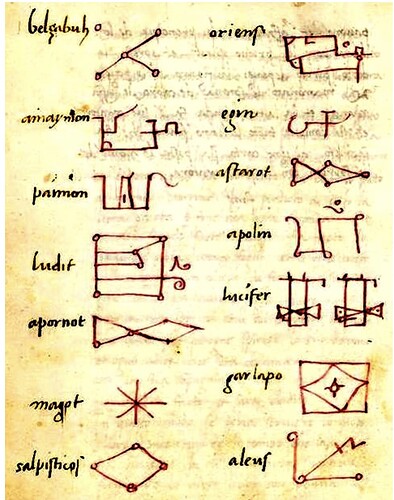 belzabuh
amaymon
paimon
ludit
apornot
magot
salpisticos
oriens
egin
astarot
apolin
lucifer
garlapo
aleus